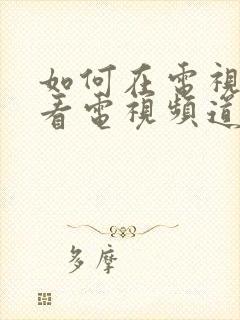 如何在電視
看電視頻道
多摩